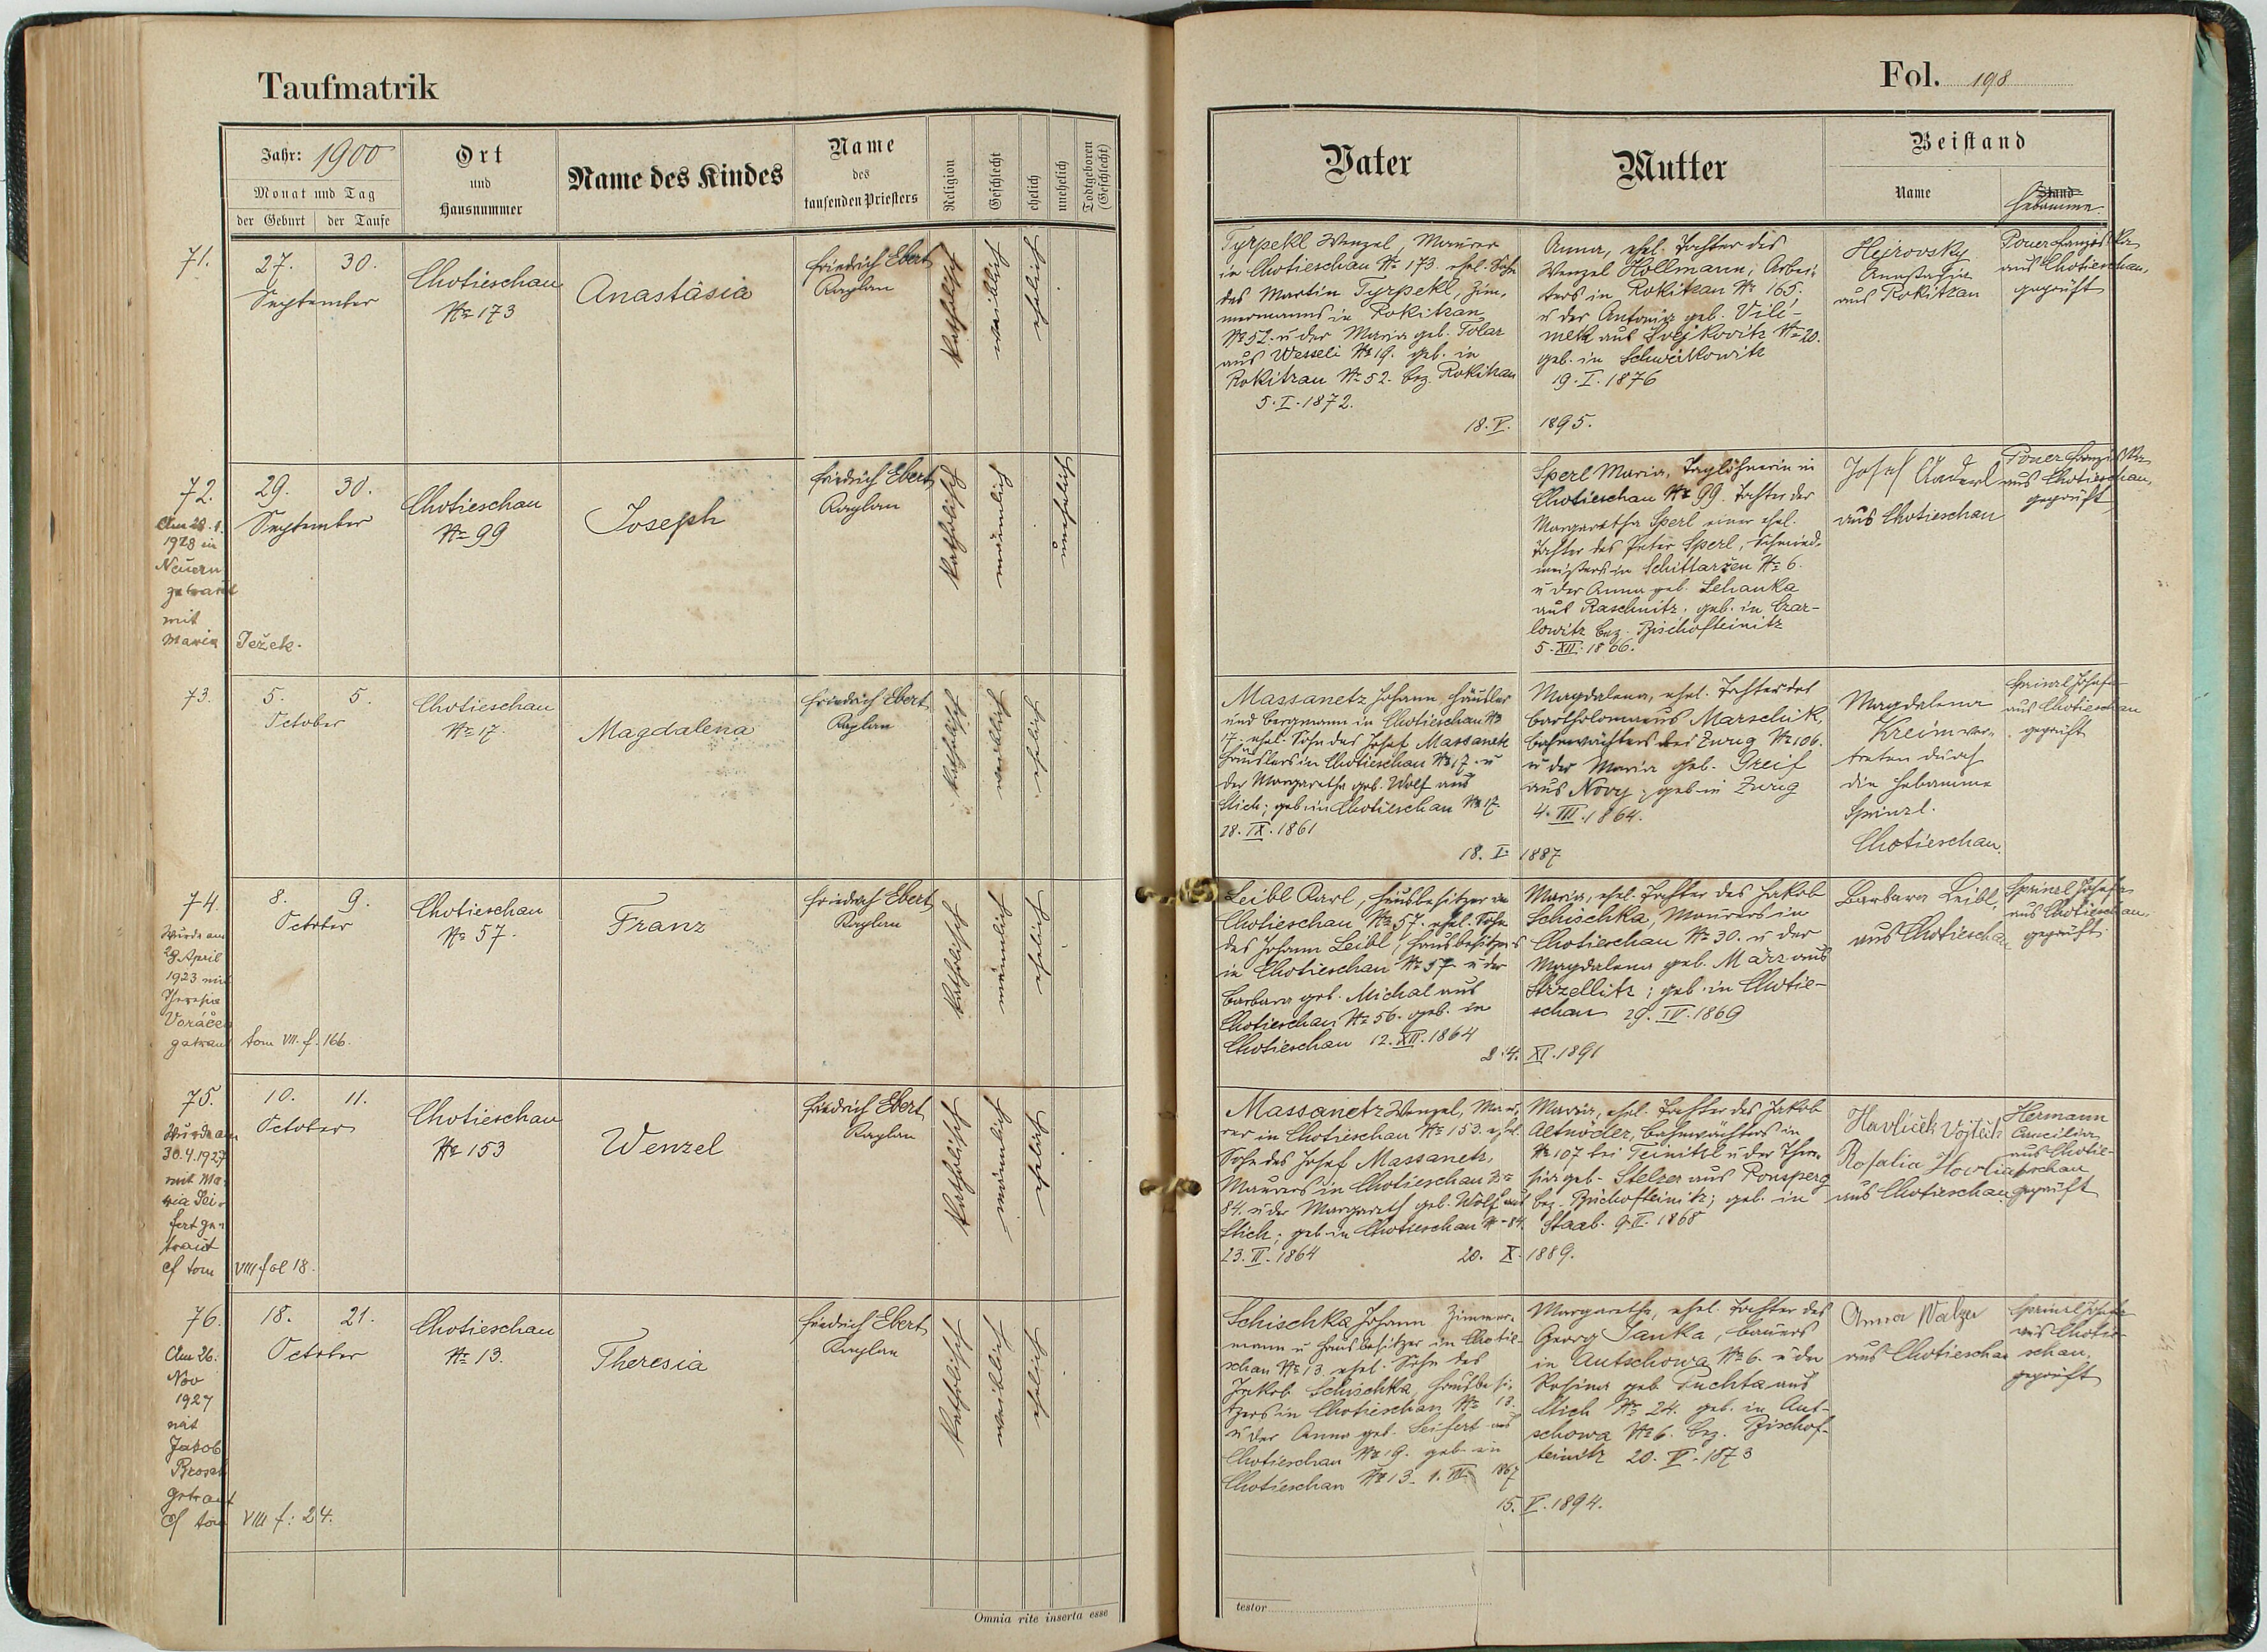 Taufmatrik
Jahr: 1900
Monat und Tag
der Geburt
der Taufe
Ort
und
Hausnummer
Name des Kindes
Name
des
taufenden Priesters
Religion
Geschlecht
ehelich
unehelich
Todtgeboren
(Geschlecht)
71.
27. 30.
September
Chotieschau
№ 173
Anastásia
Friedrich Ebert
Kaplan
katholisch
weiblich
ehelich
72.
Am 28.1.
1928 in
Neuern
getraut
mit
Maria Ježek.
29. 30.
September
Chotieschau
№ 99
Joseph
Friedrich Ebert
Kaplan
katholisch
männlich
unehelich
73.
5. 5.
October
Chotieschau
№ 17.
Magdalena
Friedrich Ebert
Kaplan
katholisch
weiblich
ehelich
74.
Wurde am
28 April
1923 mit
Theresia
Voráček
getraut tom VII. f. 166.
8. 9.
October
Chotieschau
№ 57.
Franz
Friedrich Ebert
Kaplan
katholisch
männlich
ehelich
75.
Wurde am
30.4.1927
mit Ma-
ria Sei-
fert ge-
traut
cf tom VIII fol 18.
10. 11.
October
Chotieschau
№ 153
Wenzel
Friedrich Ebert
Kaplan
katholisch
männlich
ehelich
76.
Am 26.
Nov
1927
mit
Jakob
Brosch
getraut
cf tom VIII f: 24.
18. 21.
October
Chotieschau
№ 13.
Theresia
Friedrich Ebert
Kaplan
katholisch
weiblich
ehelich
Omnia rite inserta esse
Fol. 198
Vater
Mutter
Beistand
Name
Stand
Hebamme.
Tyrpekl Wenzel, Maurer
in Chotieschau № 173. ehel. Sohn
des Martin Tyrpekl, Zim-
mermanns in Rokitzan
№ 52. u der Maria geb. Tolar
aus Wesseli № 19. geb. in
Rokitzan № 52. bez. Rokitzan
5.I.1872.
Anna, ehel. Tochter des
Wenzel Hollmann, Arbei-
ters in Rokitzan № 165,
u der Antonia geb. Vili-
mek aus Svejkovitz № 20.
geb. in Schweikowitz
19.I.1876
18.V. 1895.
Hejrovsky
Anastasia
aus Rokitzan
Poner Franziska
aus Chotieschau,
geprüft
Sperl Maria, Taglöhnerin in
Chotieschau № 99. Tochter der
Margaretha Sperl einer ehel.
Tochter des Peter Sperl, Schmied-
meisters in Schittarzen № 6.
u der Anna geb. Lehanka
aus Raschnitz. geb. in Czar-
lowitz bez. Bischofteinitz
5.XII.1866.
Josef Anderl
aus Chotieschau
Poner Franziska
aus Chotieschau,
geprüft
Massanetz Johann Häusler
und Bergmann in Chotieschau №
17. ehel. Sohn des Josef Massanetz
Häuslers in Chotieschau № 17. u
der Margaretha geb. Wolf aus
Stich; geb. in Chotieschau № 17
28.IX.1861
Magdalena, ehel. Tochter des
Bartholomeus Marschik,
Bahnwächters bei Zwug № 106.
u der Maria geb. Greif
aus Novy; geb. in Zwug
4.III.1864.
18.I. 1887
Magdalena
Kreim ver-
treten durch
die Hebamme
Spinzl.
Chotieschau.
Spinzl Josefa
aus Chotieschau
geprüft
Leibl Karl, Hausbesitzer in
Chotieschau № 57. ehel. Sohn
des Johann Leibl, Hausbesitzers
in Chotieschau № 57 u der
Barbara geb. Michal aus
Chotieschau № 56. geb. in
Chotieschau 12.XII.1864
Maria, ehel. Tochter des Jakob
Schischka, Maurers in
Chotieschau № 30. u der
Magdalena geb. März aus
Strzellitz; geb. in Chotie-
schau 29.IV.1869
24. XI.1891
Barbara Leibl,
aus Chotieschau
Spinzl Josefa
aus Chotieschau.
geprüft.
Massanetz Wenzel, Mau-
rer in Chotieschau № 153. ehel.
Sohn des Josef Massanetz,
Maurers in Chotieschau №
84. u der Margareth geb. Wolf aus
Stich; geb. in Chotieschau № 84
23.II.1864
Maria, ehel. Tochter des Jakob
Altnöder, Bahnwächters in
№ 107 bei Teinitzl u der There-
sia geb. Stelzer aus Ronsperg
bez. Bischofteinitz; geb. in
Staab. 9.II.1868
20. X. 1889.
Havlicek Vojtěch
Rosalia
aus Chotieschau
Hermann
aus Chotie-
schau
geprüft
Schischka Johann Zimmer-
mann u Hausbesitzer in Chotie-
schau № 13 ehel. Sohn des
Jakob Schischka, Hausbesi-
tzers in Chotieschau № 13.
u der Anna geb. Seifert aus
Chotieschau № 19. geb. in
Chotieschau № 13. 1. 1867
Margaretha, ehel. Tochter des
Georg Janka, Bauers
in Autschowa № 6. u der
Rosina geb. Puchta aus
Stich № 24. geb. in Aut-
schowa № 6. bez. Bischof-
teinitz 20.V.1873
15. V.1894.
Anna Walzer
aus Chotieschau
Spinzl Josefa
aus Chotie-
schau,
geprüft
testor